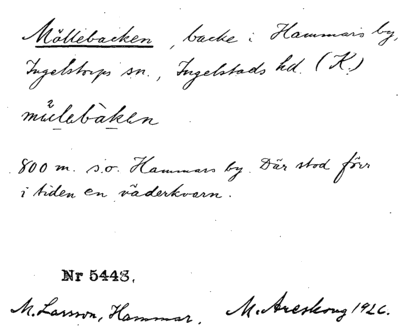 Möllebacken, backe i Hammars by,
Ingelstorps sn., Ingelstads hd. (K.)
mǜlebàken
800 m. s.o. Hammars by. Där stod förr
i tiden en väderkvarn.
Nr 5443.
M. Larsson, Hammar. M. Areskoug 1926.